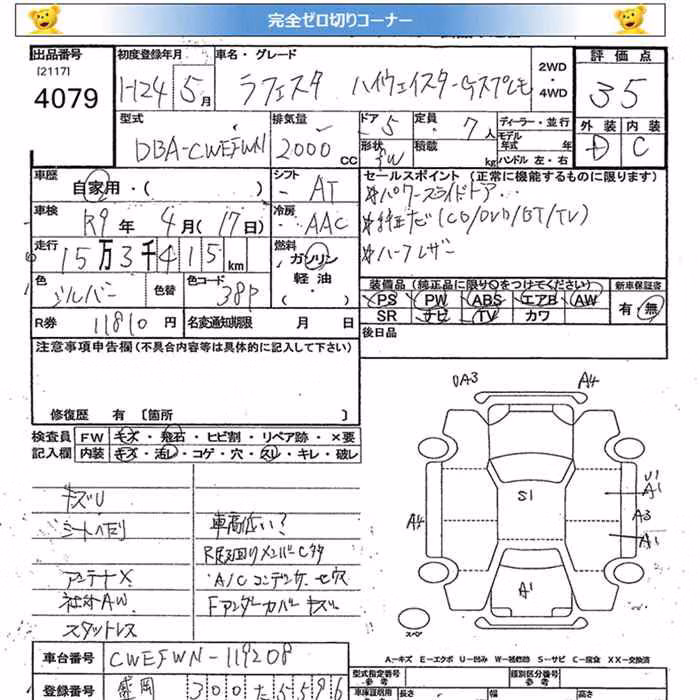 完全ゼロ切りコーナー
出品番号 初度登録年月 車名・グレード 評価点
[2117] 2WD ・ 4WD
4079 H24 5月 ラフェスタ ハイウェイスターGスプレモ 35
型式 排気量 ドア 5 定員 7人 ディーラー・並行 外装 内装
DBA-CWEFWN 2000cc 形状 FW 積載 kg モデル年式 年 D C
ハンドル 左・右
車歴 自家用・( ) シフト AT セールスポイント (正常に機能するものに限ります)
車検 R9年 4月(17日) 冷房 AAC *パワースライドドア
*純正ナビ(CD/DVD/BT/TV)
走行 15万3千415km 燃料 ガソリン *ハーフレザー
軽油
・( )
色 シルバー 色替 色コード 38P 装備品 (純正品に限り〇をつけてください) 新車保証書
PS PW ABS エアB AW 有・無
R券 11810円 名変通知期限 月 日 SR ナビ TV カワ
注意事項申告欄(不具合内容等は具体的に記入して下さい) 後日品
修復歴 有 [箇所 ]
検査員 FW キズ・飛石・ヒビ割・リペア跡・×要
記入欄 内装 キズ・汚レ・コゲ・穴・スレ・キレ・破レ
UA3 A4
キズU
シートヘタリ 車高低い?
アンテナX A/Cコンデンサ
社外AW Fアンダーカバー キズ
スタットレス
S1
U1
A1
A4 A3
A1
A1
スペア
A-キズ E-エクボ U-凹み W-補修跡 S-サビ C-腐食 XX-交換済
車台番号 CWEFWN-119208 型式指定番号 類別区分番号
登録番号 盛岡 300 た 5596 長さ 幅 高さ